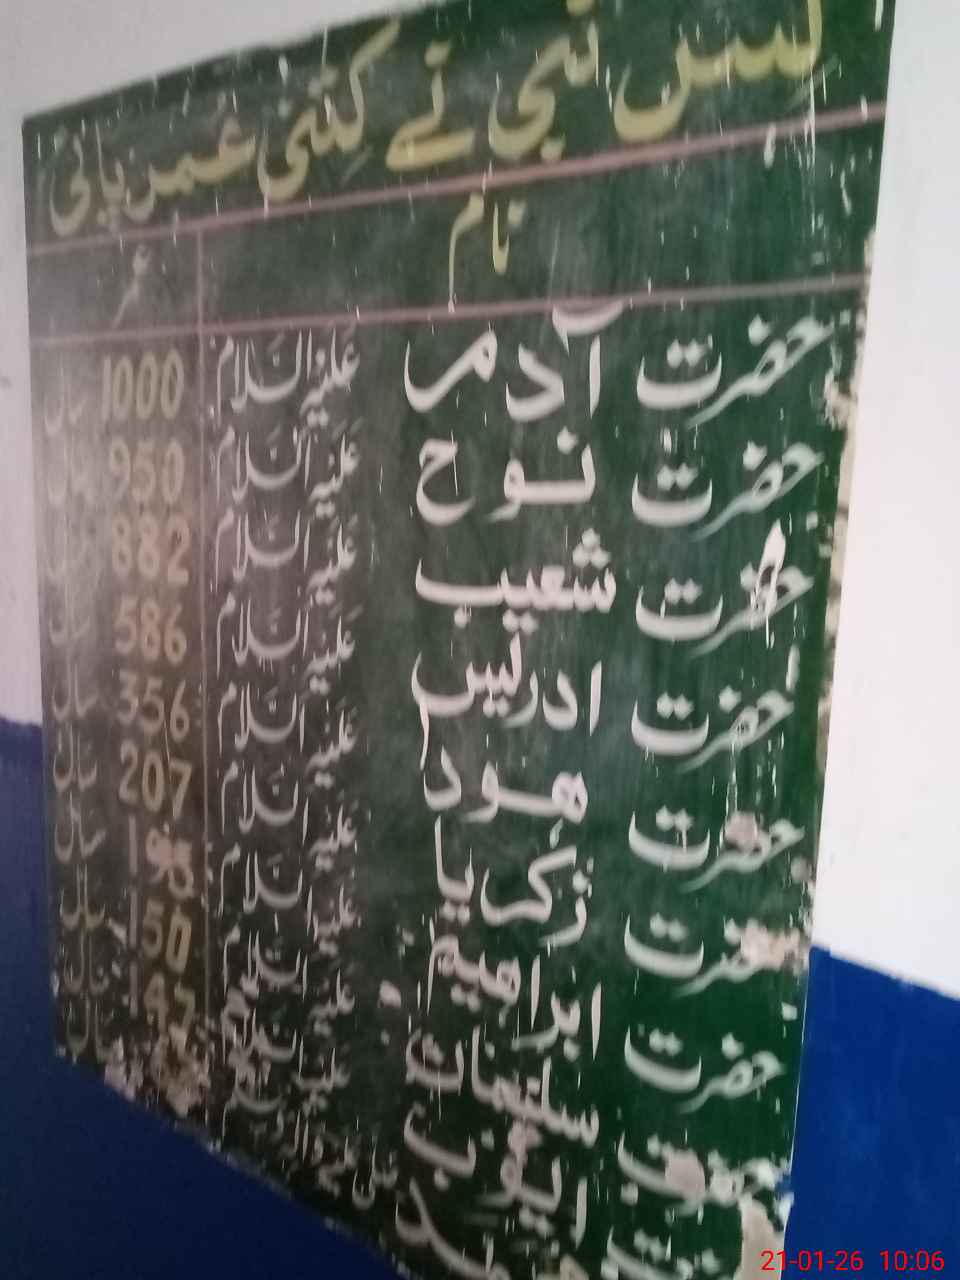 کس نبی نے کتنی عمر پائی
نام عمر
حضرت آدم علیہ السلام 1000 سال
حضرت نوح علیہ السلام 950 سال
حضرت شعیب علیہ السلام 882 سال
حضرت ادریس علیہ السلام 586 سال
حضرت ھود علیہ السلام 356 سال
حضرت زکریا علیہ السلام 207 سال
حضرت ابراھیم علیہ السلام 195 سال
حضرت سلیمان علیہ السلام 150 سال
حضرت ایوب علیہ السلام 147 سال
21-01-26 10:06